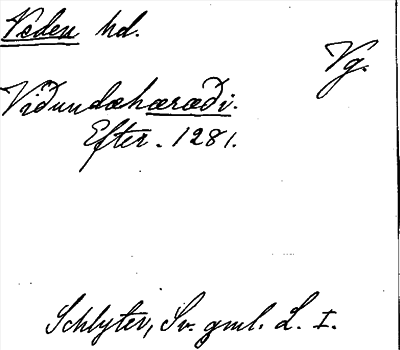 Veden hd.
Vg.
Viðundæhæræði.
Efter. 1281.
Schlyter, Sv. gml. L. I.